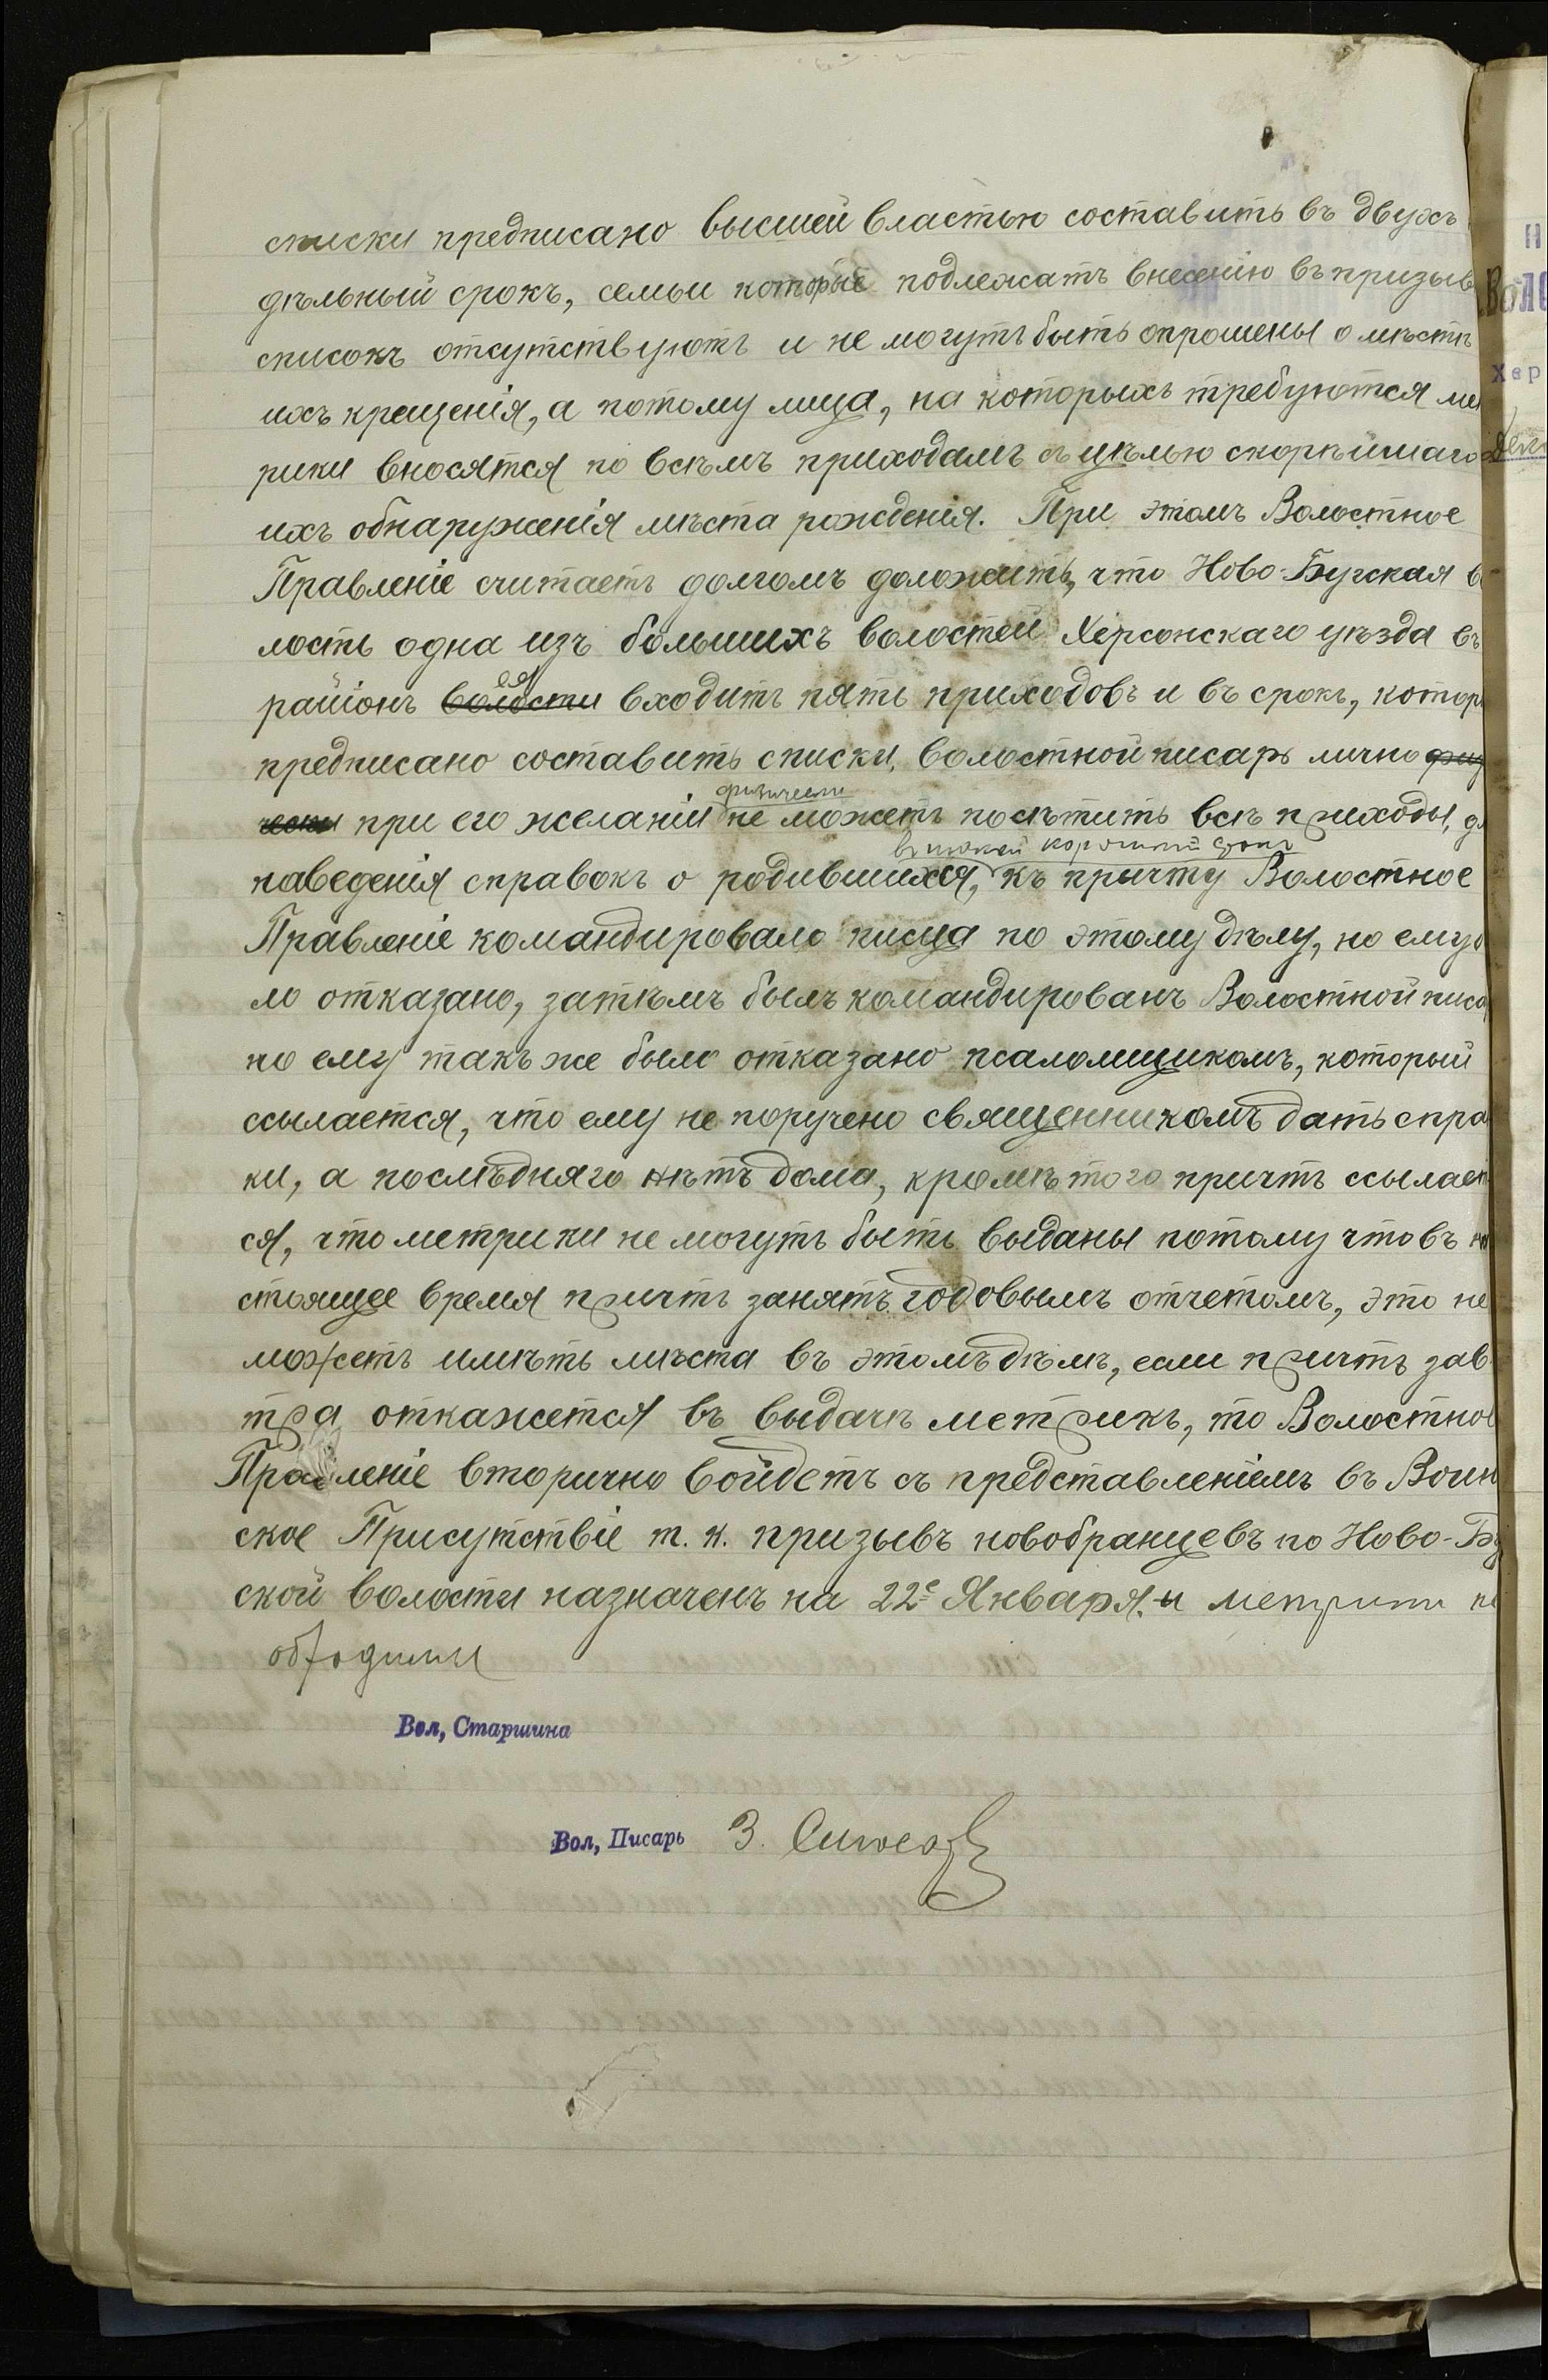 списки предписано высшей властью составить въ двухъ
дѣльный срокъ, семьи которые подлежатъ внесенію въ призыв
списокъ отсутствуютъ и не могутъ быть опрошены о мѣстѣ
ихъ крещенія, а потому лица, на которыхъ требуются ме
рики вносятся по всѣмъ приходамъ съ цѣлью скорѣйшаго
ихъ обнаруженія мѣста рожденія. При этомъ Волостное
Правленіе считаетъ долгомъ доложить, что Ново-Бугская во
лость одна изъ большихъ волостей Херсонскаго уѣзда въ
ея
районъ волости входитъ пять приходовъ и въ срокъ, котор
предписано составить списки, волостной писарь лично физ
физически
чески при его желаніи не можетъ посѣтить всѣ приходы, дл
въ такой короткій срокъ
наведенія справокъ о родившихся, къ причту Волостное
Правленіе командировало писца по этому дѣлу, но ему б
ло отказано, затѣмъ былъ командированъ Волостной писа
но ему такъ же было отказано псаломщикомъ, который
ссылается, что ему не поручено священникомъ дать спра
ки, а послѣдняго нѣтъ дома, кромѣ того причтъ ссылает
ся, что метрики не могутъ быть выданы потому что въ на
стоящее время причтъ занятъ годовымъ отчетомъ, это не
можетъ имѣть мѣста въ этомъ дѣлѣ, если причтъ зав
тра откажется въ выдачѣ метрикъ, то Волостное
Правленіе вторично войдетъ съ представленіемъ въ Воин
ское Присутствіе т. к. призывъ новобранцевъ по Ново-Бу
ской волости назначенъ на 22е Января. и метрики не
обходимы
Вол, Старшина
Вол, Писарь З.
Н
ВОЛО
Хер